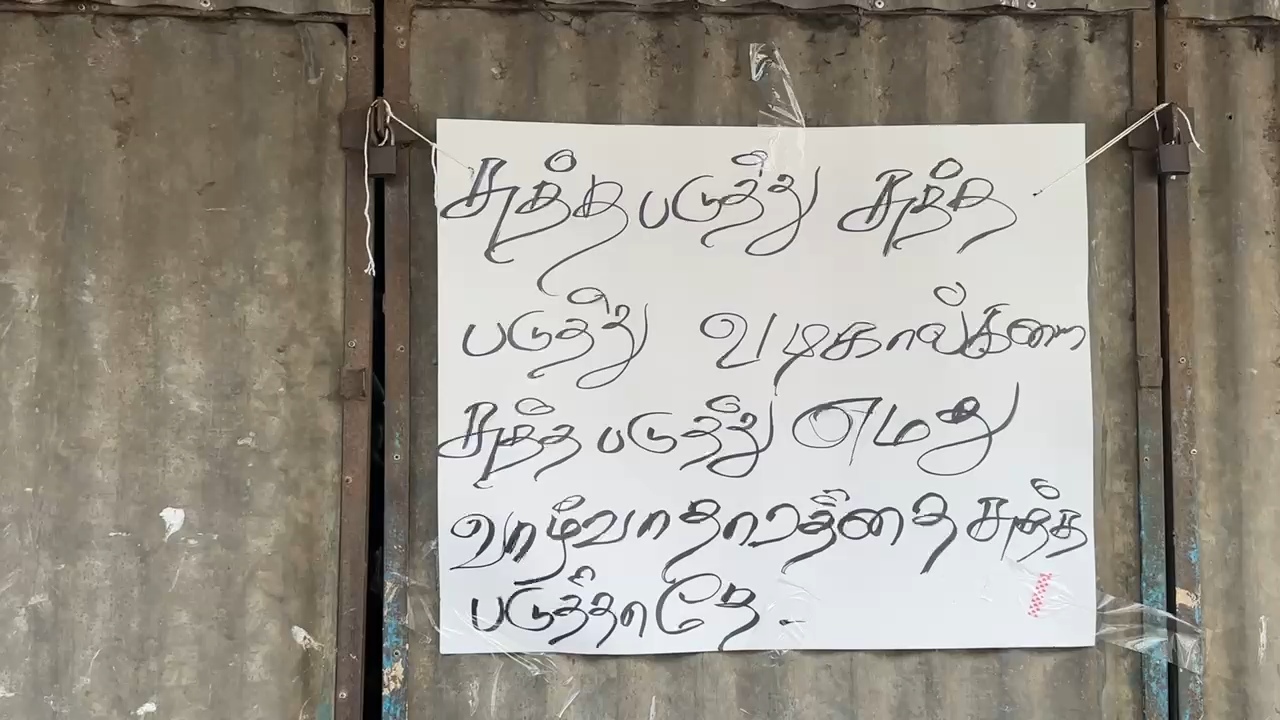 சுத்த படுத்து சுத்த
படுத்து வடிகால்களை
சுத்த படுத்து எமது
வாழ்வாதாரத்தை சுத்த
படுத்தாதே.